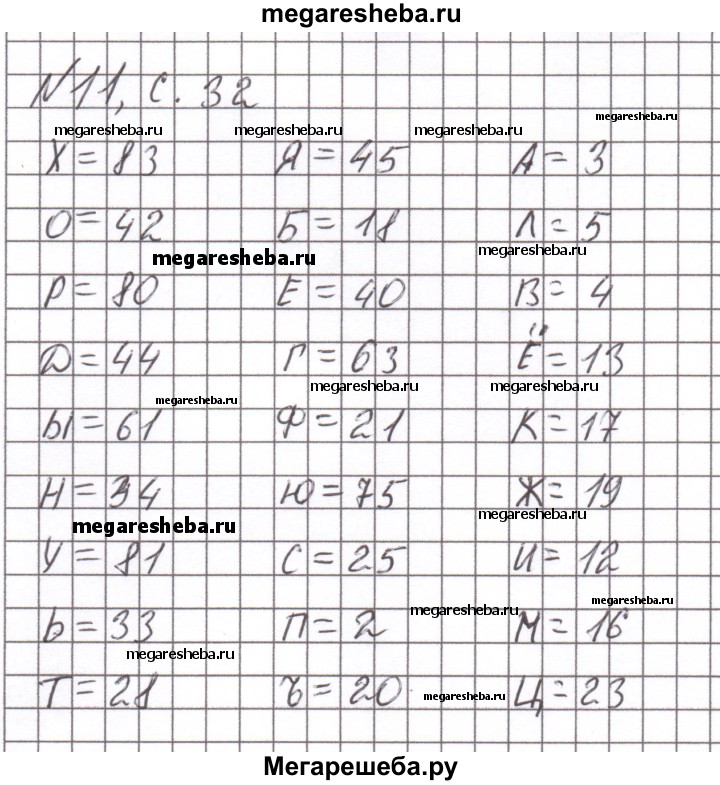 megaresheba.ru
N11, с. 32
megaresheba.ru
megaresheba.ru megaresheba.ru megaresheba.ru
Х = 83 Я = 45 А = 3
О = 42 Б = 18 Л = 5
megaresheba.ru megaresheba.ru
Р = 80 Е = 40 В = 4
Д = 44 Г = 63 Ё = 13
megaresheba.ru megaresheba.ru
megaresheba.ru
Ы = 61 Ф = 21 К = 17
Н = 34 Ю = 75 Ж = 19
megaresheba.ru megaresheba.ru
У = 81 С = 25 И = 12
megaresheba.ru megaresheba.ru
Ь = 33 П = 2 М = 16
megaresheba.ru
Т = 28 Ъ = 20 Ц = 23
megaresheba.ru
Мегарешеба.ру